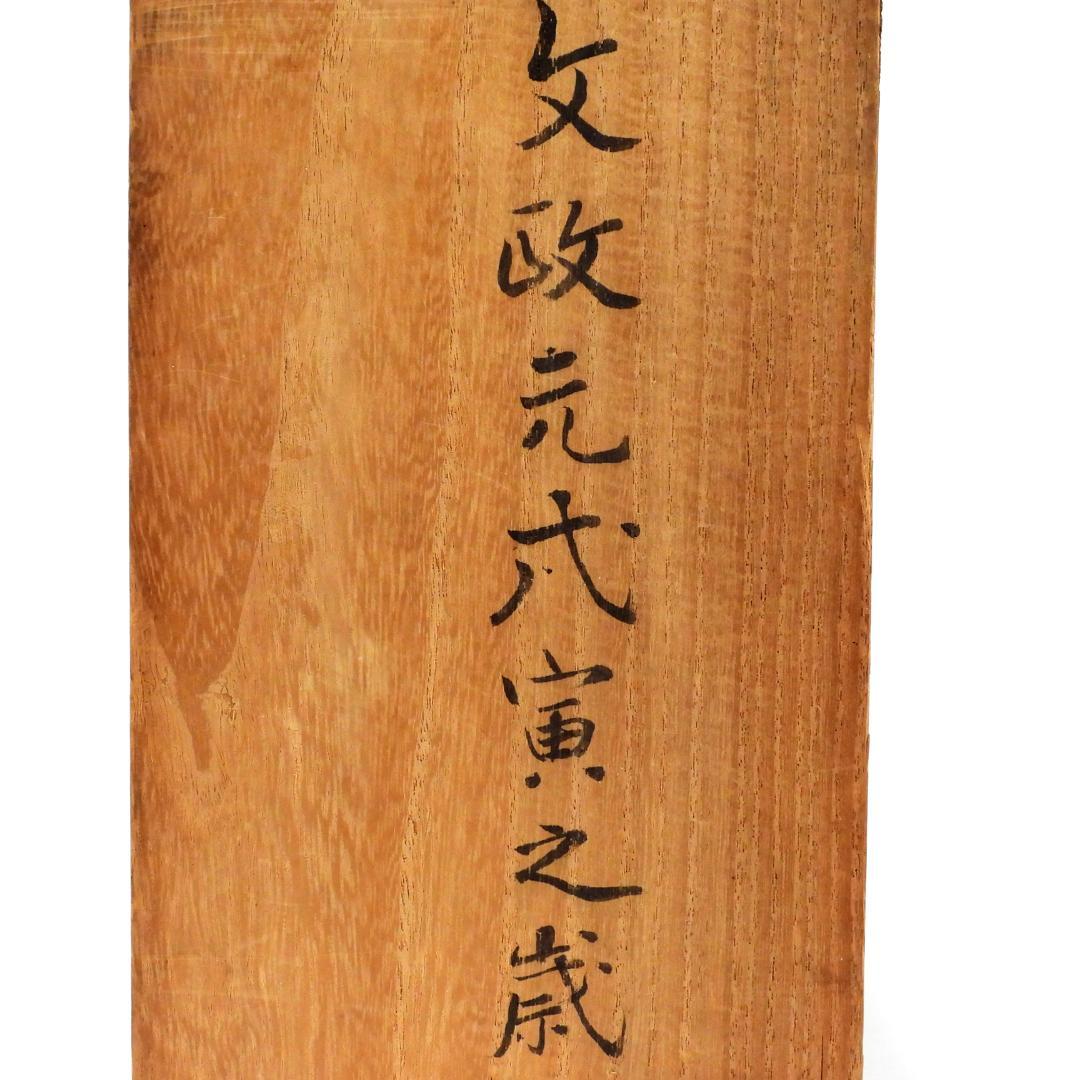 文政元戊寅之歳